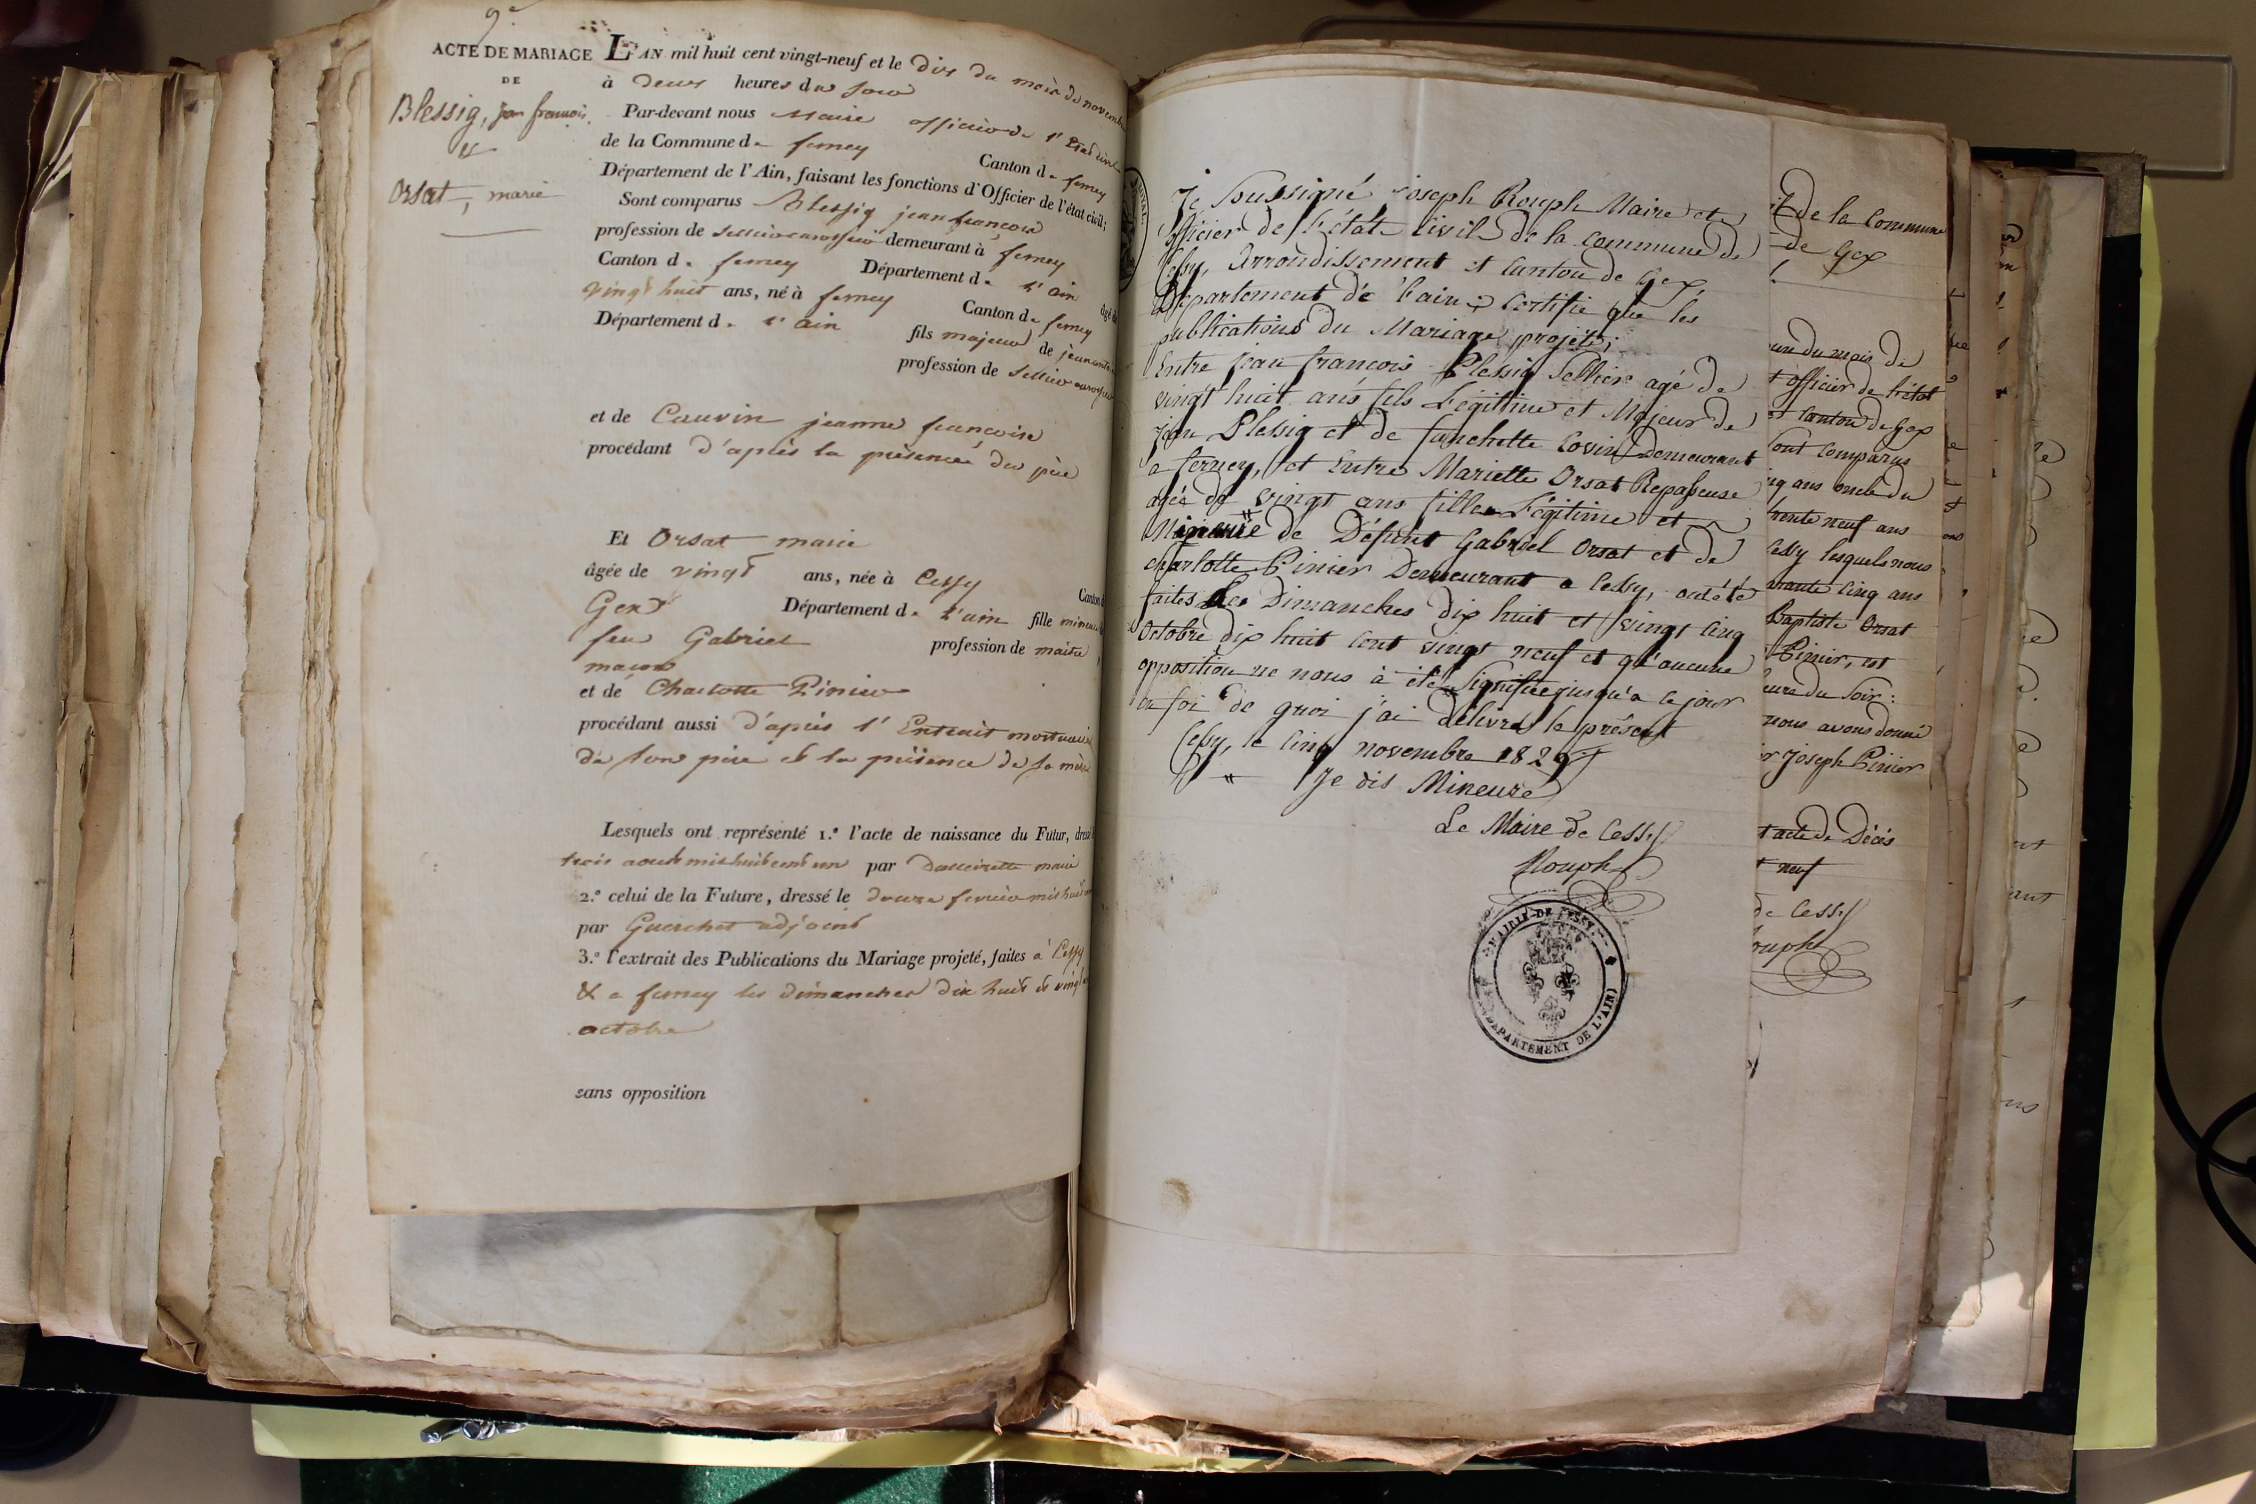 9.e
ACTE DE MARIAGE
DE
Blessig, jean françois.
et
Orsat, marie
L'AN mil huit cent vingt-neuf et le dix du mois de novembre
à deux heures du soir
Par-devant nous Maire officier de l'Etat civil
de la Commune de ferney Canton de ferney
Département de l'Ain, faisant les fonctions d'Officier de l'état civil;
Sont comparus Blessig jean françois
profession de sellier carossier demeurant à ferney
Canton de ferney Département de l'ain âgé de
vingt huit ans, né à ferney Canton de ferney
Département de l'ain fils majeur de jean
profession de sellier carossier
et de Cauvin jeanne françoise
procédant d'après la présence du père
Et Orsat marie
âgée de vingt ans, née à Cessy Canton d
Gex Département de l'ain fille mineure
feu Gabriel profession de maitre
maçon
et de Charlotte Pinier
procédant aussi d'après l'Extrait mortuaire
de son père et la présence de sa mère
Lesquels ont représenté 1.º l'acte de naissance du Futur, dressé
trois aout mil huit cent un par marie
2.º celui de la Future, dressé le douze fevrier mil huit
par Guerchet adjoint
3.º l'extrait des Publications du Mariage projeté, faites à Cessy
& a ferney les dimanches dix huit et vingt
octobre
sans opposition
Je Soussigné joseph Rouph Maire et
officier de l'état Civil de la commune de
Cessy, Arrondissement et Canton de Gex,
Département de l'ain; Certifie que les
publications du Mariage projeté;
Entre jean françois Plessig Sellier agé de
vingt huit ans fils Légitime et Majeur de
jean Plessig et de fanchette Covin Demeurant
a ferney, et Entre Mariette Orsat Repasseuse
agée de vingt ans fille Légitime et
Mineure de Défunt Gabriel Orsat et de
charlotte Pinier Demeurant a Cessy, ont été
faites Les Dimanches dix huit et vingt cinq
Octobre dix huit cent vingt neuf et qu'aucune
opposition ne nous à été Signifiée jusqu'a ce jour
en foi de quoi j'ai délivré le présent
Cessy, le cinq novembre 1829
" Je dis Mineure
Le Maire de Cessy
Rouph
MAIRIE DE CESSY
DÉPARTEMENT DE L'AIN
de la Commune
de Gex
du mois de
officier de l'état
et Canton de Gex
Sont Comparus
ans oncle du
trente neuf ans
Cessy lesquels nous
cinq ans
Baptiste Orsat
Pinier, est
heure du Soir:
nous avons donné
Joseph Pinier
acte de Décés
neuf
de Cessy
Rouph